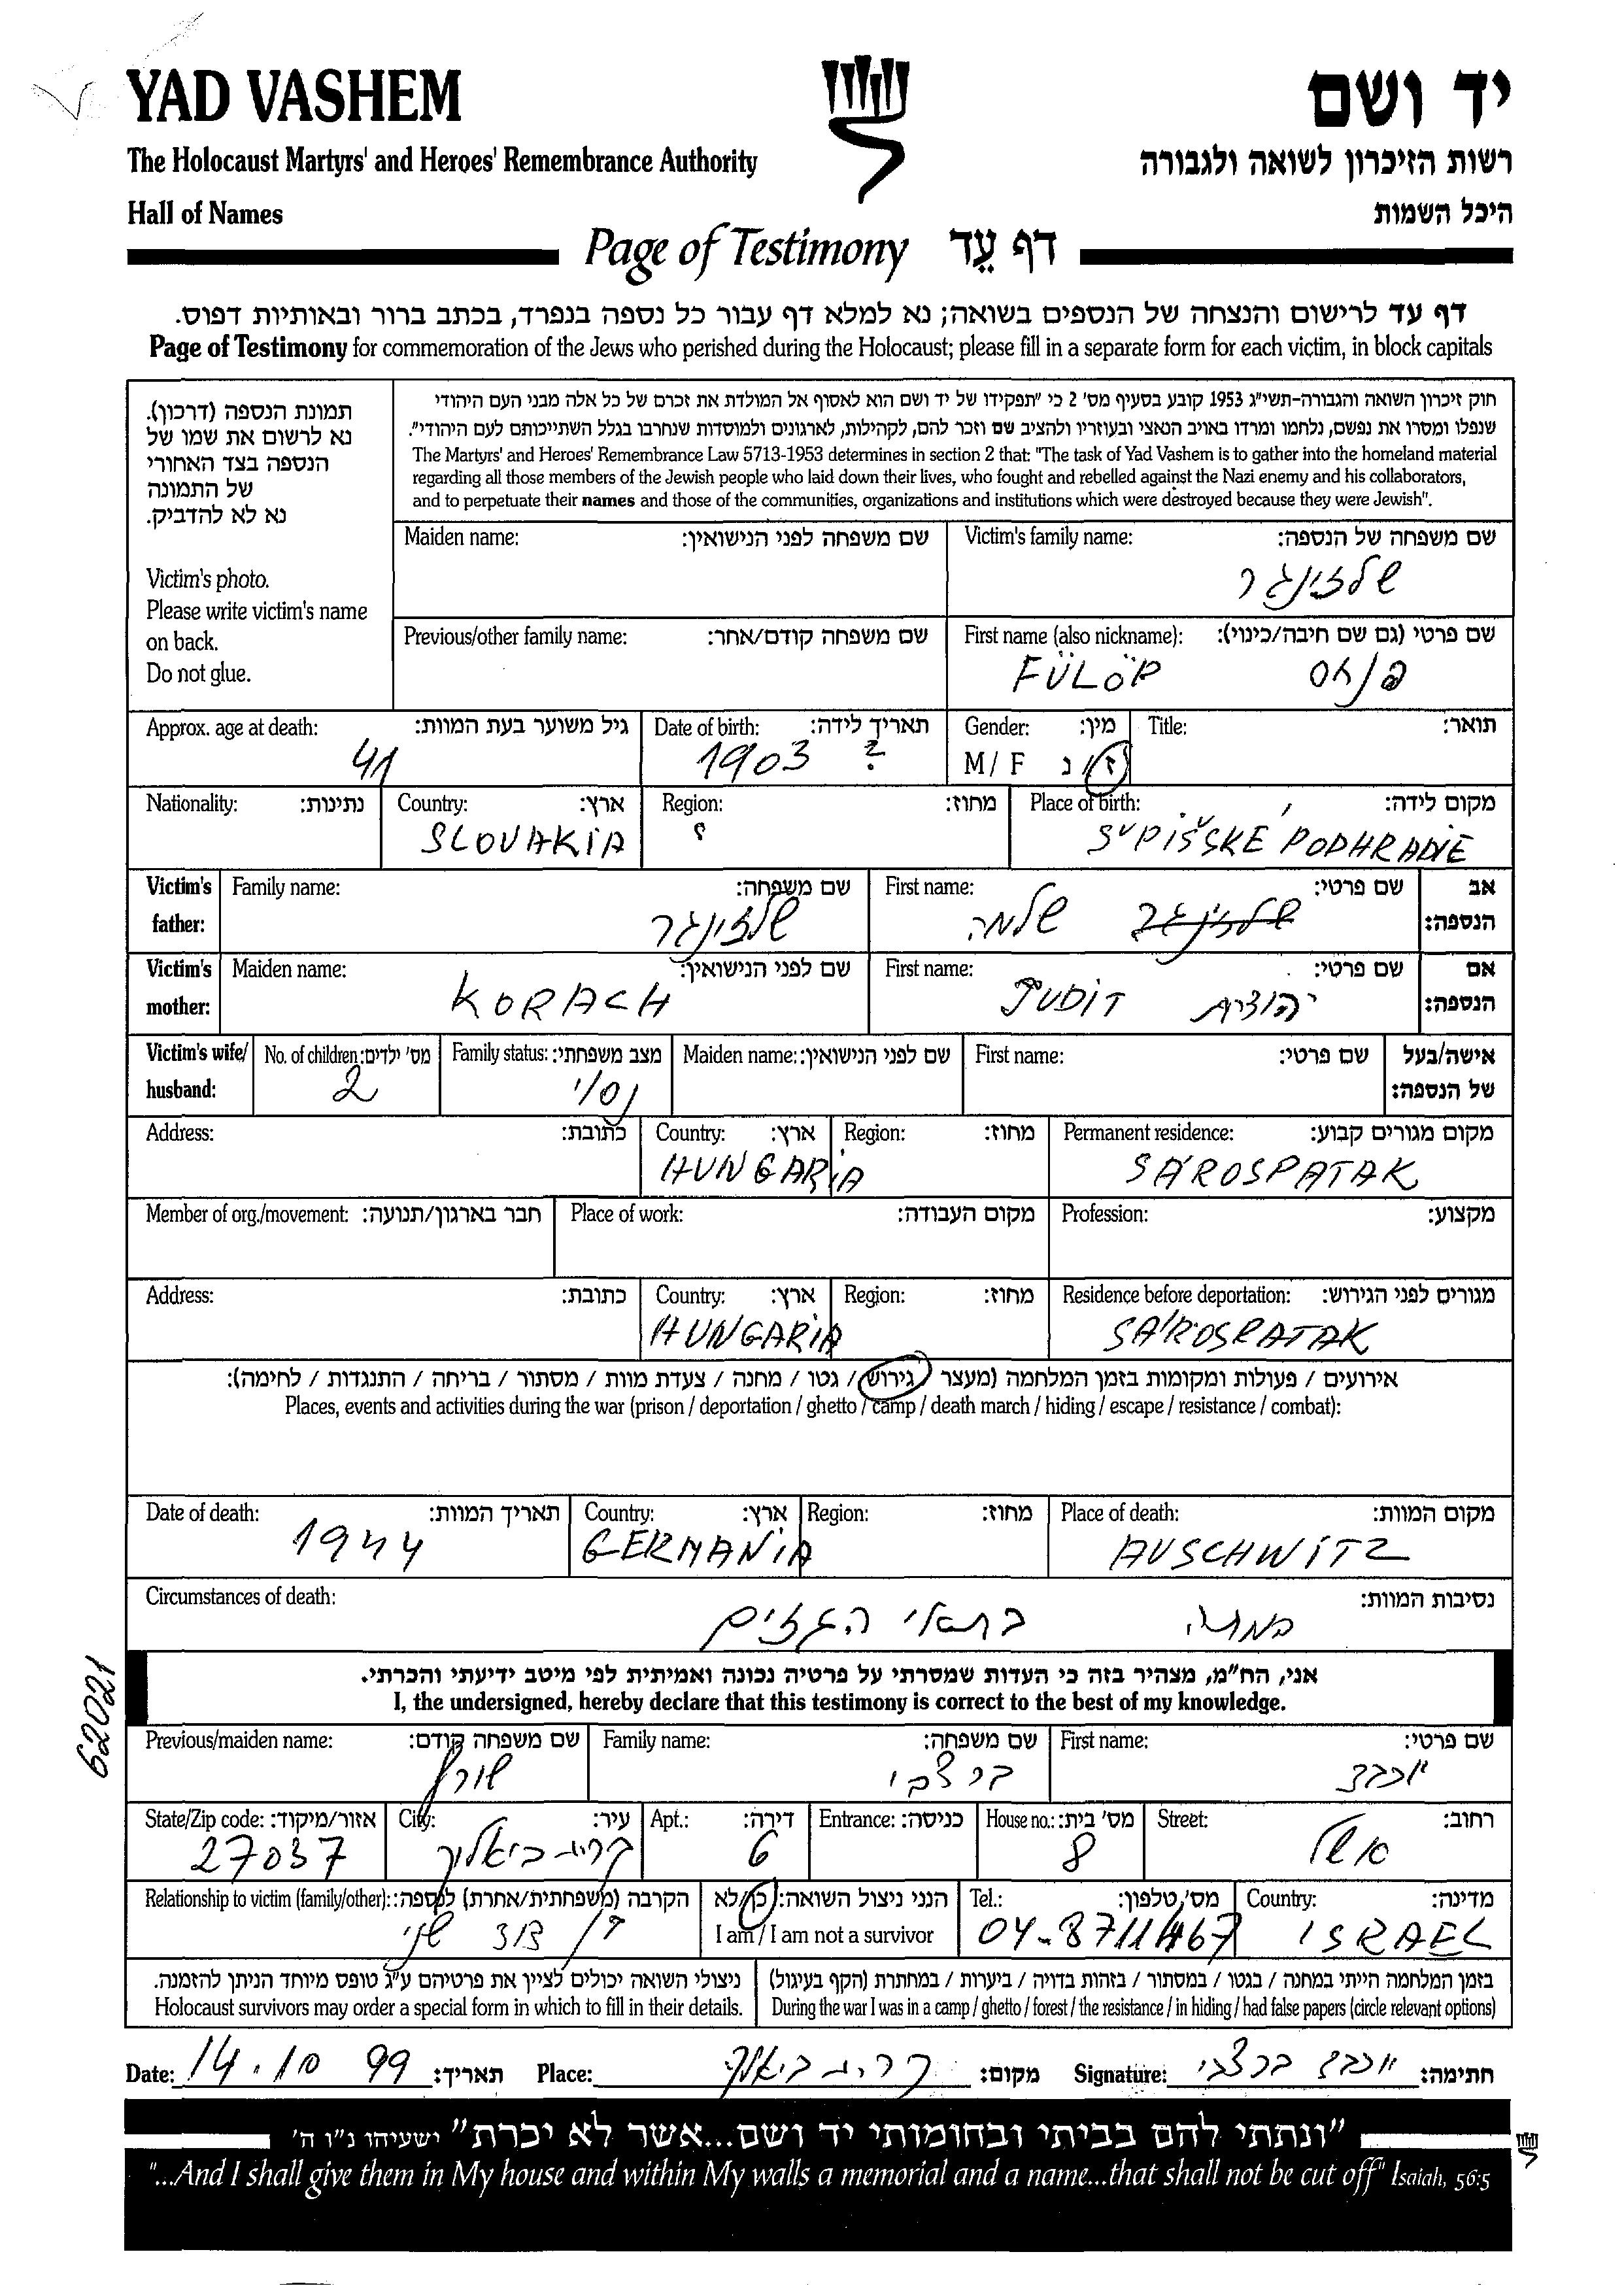 YAD VASHEM
יד ושם
The Holocaust Martyrs' and Heroes' Remembrance Authority
רשות הזיכרון לשואה ולגבורה
Hall of Names
היכל השמות
Page of Testimony דף עֵד
דף עד לרישום והנצחה של הנספים בשואה; נא למלא דף עבור כל נספה בנפרד, בכתב ברור ובאותיות דפוס.
Page of Testimony for commemoration of the Jews who perished during the Holocaust; please fill in a separate form for each victim, in block capitals
תמונת הנספה (דרכון).
נא לרשום את שמו של
הנספה בצד האחורי
של התמונה
נא לא להדביק.
Victim's photo.
Please write victim's name
on back.
Do not glue.
חוק זיכרון השואה והגבורה-תשי"ג 1953 קובע בסעיף מס' 2 כי "תפקידו של יד ושם הוא לאסוף אל המולדת את זכרם של כל אלה מבני העם היהודי
שנפלו ומסרו את נפשם, נלחמו ומרדו באויב הנאצי ובעוזריו ולהציב שם וזכר להם, לקהילות, לארגונים ולמוסדות שנחרבו בגלל השתייכותם לעם היהודי".
The Martyrs' and Heroes' Remembrance Law 5713-1953 determines in section 2 that: "The task of Yad Vashem is to gather into the homeland material
regarding all those members of the Jewish people who laid down their lives, who fought and rebelled against the Nazi enemy and his collaborators,
and to perpetuate their names and those of the communities, organizations and institutions which were destroyed because they were Jewish".
Maiden name: שם משפחה לפני הנישואין:
Victim's family name: שם משפחה של הנספה:
שלזינגר
Previous/other family name: שם משפחה קודם/אחר:
First name (also nickname): שם פרטי (גם שם חיבה/כינוי):
FÜLÖP
Approx. age at death: גיל משוער בעת המוות: Date of birth: תאריך לידה: Gender: מין: Title: תואר:
41 1903 ? M / F ז / נ
Nationality: נתינות: Country: ארץ: Region: מחוז: Place of birth: מקום לידה:
SLOVAKIA ? SPIŠSKÉ PODHRADIE
Victim's father: Family name: שם משפחה: First name: שם פרטי: אב הנספה:
שלזינגר שלמה שלזינגר
Victim's mother: Maiden name: שם לפני הנישואין: First name: שם פרטי: אם הנספה:
KORACH JUDIT יהודית
Victim's wife/ husband: No. of children: מס' ילדים: Family status: מצב משפחתי: Maiden name: שם לפני הנישואין: First name: שם פרטי: אישה/בעל של הנספה:
2 נשוי
Address: כתובת: Country: ארץ: Region: מחוז: Permanent residence: מקום מגורים קבוע:
HUNGARIA SÁROSPATAK
Member of org./movement: חבר בארגון/תנועה: Place of work: מקום העבודה: Profession: מקצוע:
Address: כתובת: Country: ארץ: Region: מחוז: Residence before deportation: מגורים לפני הגירוש:
HUNGARIA SÁROSPATAK
אירועים / פעולות ומקומות בזמן המלחמה (מעצר / גירוש / גטו / מחנה / צעדת מוות / מסתור / בריחה / התנגדות / לחימה):
Places, events and activities during the war (prison / deportation / ghetto / camp / death march / hiding / escape / resistance / combat):
Date of death: תאריך המוות: Country: ארץ: Region: מחוז: Place of death: מקום המוות:
1944 GERMANIA AUSCHWITZ
Circumstances of death: נסיבות המוות:
בתאי הגזים
אני, הח"מ, מצהיר בזה כי העדות שמסרתי על פרטיה נכונה ואמיתית לפי מיטב ידיעתי והכרתי.
I, the undersigned, hereby declare that this testimony is correct to the best of my knowledge.
62021
Previous/maiden name: שם משפחה קודם: Family name: שם משפחה: First name: שם פרטי:
שורץ בר צבי יוכבד
State/Zip code: אזור/מיקוד: City: עיר: Apt.: דירה: Entrance: כניסה: House no.: מס' בית: Street: רחוב:
27037 קרית ביאליק 6 8
Relationship to victim (family/other): הקרבה (משפחתית/אחרת) לנספה: הנני ניצול השואה: כן/לא Tel.: מס' טלפון: Country: מדינה:
שני I am / I am not a survivor 04-8711467 ISRAEL
ניצולי השואה יכולים לציין את פרטיהם ע"ג טופס מיוחד הניתן להזמנה.
Holocaust survivors may order a special form in which to fill in their details.
בזמן המלחמה הייתי במחנה / בגטו / במסתור / בזהות בדויה / ביערות / במחתרת (הקף בעיגול)
During the war I was in a camp / ghetto / forest / the resistance / in hiding / had false papers (circle relevant options)
Date: 14.10 99 תאריך: Place: קרית ביאליק מקום: Signature: יוכבד בר צבי חתימה:
"ונתתי להם בביתי ובחומותי יד ושם...אשר לא יכרת" ישעיהו נ"ו ה'
"...And I shall give them in My house and within My walls a memorial and a name...that shall not be cut off" Isaiah, 56:5